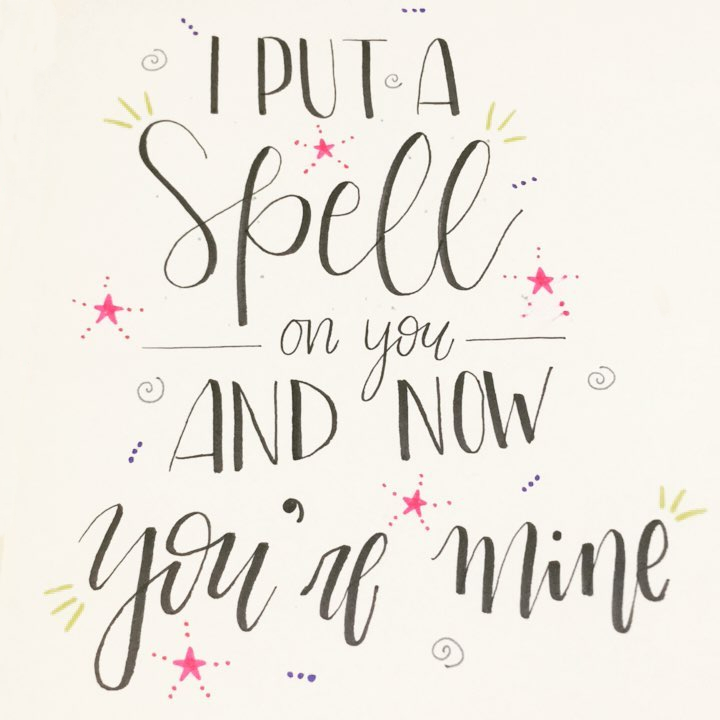 I PUT A
Spell
on you
AND NOW
you're mine